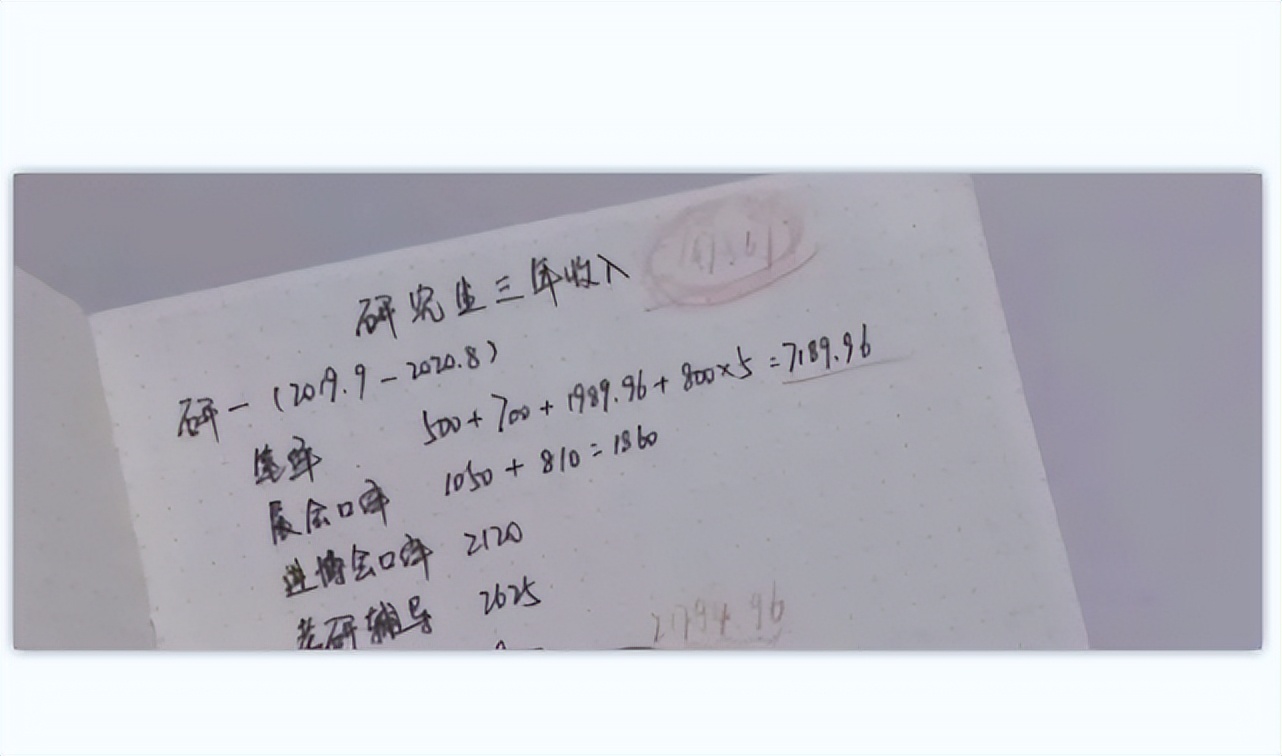 研究生三年收入
研一（2019.9-2020.8）
笔译 500+700+1989.96+800×5=7189.96
展会口译 1050+810=1860
进博会口译 2120
考研辅导 2625
21794.96